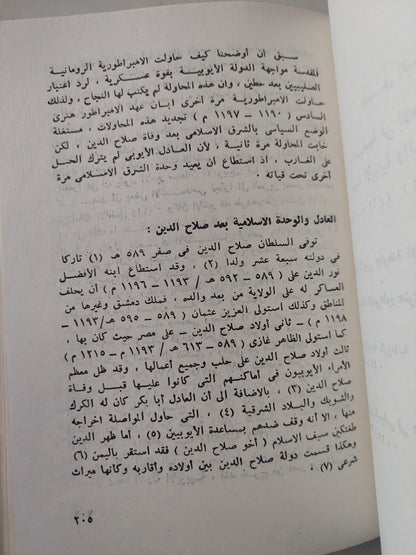 سبق أن أوضحنا كيف حاولت الامبراطورية الرومانية
المقدسة مواجهة الدولة الأيوبية بقوة عسكرية ، لرد اعتبار
الصليبيين بعد حطين ، وان هذه المحاولة لم يكتب لها النجاح ، ولذلك
حاولت الامبراطورية مرة أخرى ابان عهد الامبراطور هنرى
السادس ( ١١٩٠ – ١١٩٧ م ) تجديد هذه المحاولات ، مستغلة
الوضع السياسى بالشرق الاسلامى بعد وفاة صلاح الدين ، لكن
خابت المحاولة مرة ثانية ، لأن العادل الأيوبى لم يترك الحبل
على الغارب ، اذ استطاع أن يعيد وحدة الشرق الاسلامى مرة
أخرى تحت قيادته .
العادل والوحدة الاسلامية بعد صلاح الدين :
توفى السلطان صلاح الدين فى صفر ٥٨٩ هـ (١) تاركا
فى دولته سبعة عشر ولدا (٢) ، وقد استطاع ابنه الأفضل
نور الدين على ( ٥٨٩ – ٥٩٢ هـ / ١١٩٣ – ١١٩٦ م ) أن يحلف
العساكر له على الولاية من بعد والده ، فملك دمشق وغيرها من
المناطق وكذلك استولى العزيز عثمان ( ٥٨٩ – ٥٩٥ هـ / ١١٩٣ –
١١٩٨ م ) – ثانى أولاد صلاح الدين – على مصر حيث كان بها ،
كما استولى الظاهر غازى ( ٥٨٩ – ٦١٣ هـ / ١١٩٣ م – ١٢١٥ م )
ثالث أولاد صلاح الدين على حلب وجميع أعمالها ، وقد ظل معظم
الأمراء الأيوبيون فى أماكنهم التى كانوا عليها قبل وفاة
صلاح الدين (٣) ، بالاضافة الى أن العادل أبا بكر كان له الكرك
والشوبك والبلاد الشرقية (٤) ، التى حاول المواصلة اخراجه
منها ، الا أنه وقف ضدهم بمساعدة الأيوبيين (٥) ، أما ظهر الدين
طغتكين سيف الاسلام ( أخو صلاح الدين ) فقد استقر باليمن (٦)
وهكذا قسمت دولة صلاح الدين بين أولاده وأقاربه وكأنها ميراث
شرعى (٧) .
٢٠٥